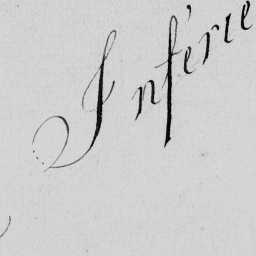 Inférie